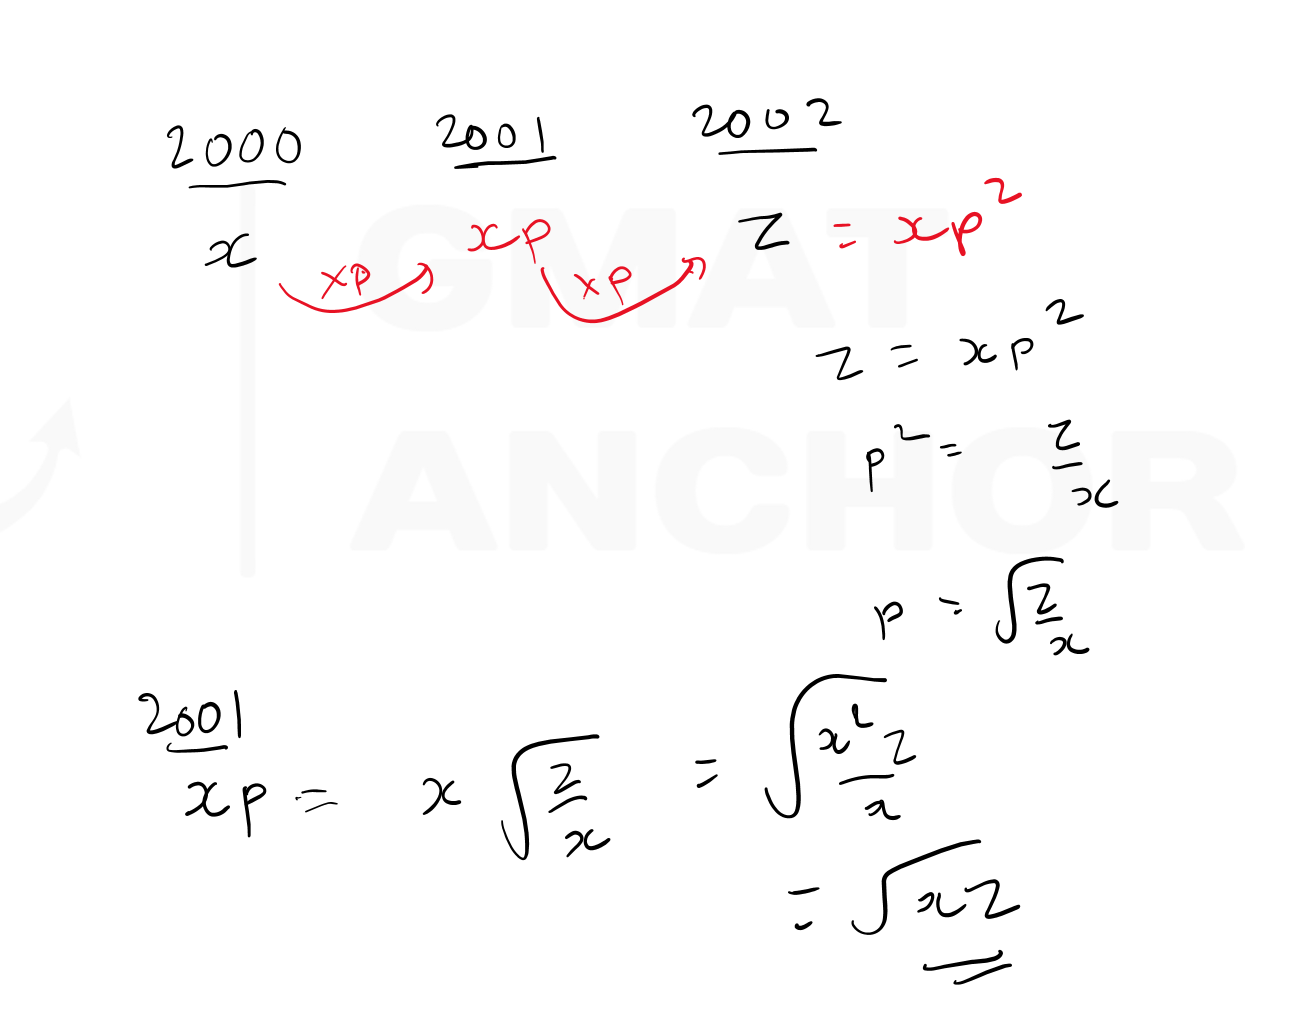 2000 2001 2002
x xp z = xp²
xp xp
z = xp²
p² = z/x
p = √z/x
2001
xp = x √z/x = √x²z/x
= √xz
GMAT
ANCHOR